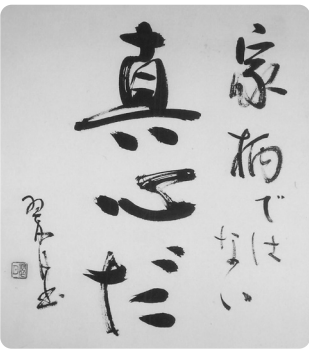 家柄ではない
真心だ